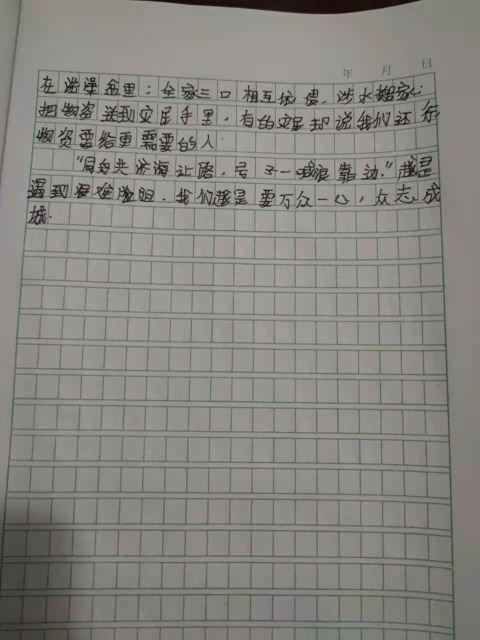 年 月 日
在洪澡盆里；全家三口相互依偎，涉水搬家；
把物资送到灾民手里，有的灾民却说我们还行
物资要给更需要的人
"同舟共济海让路，号子一喊浪靠边，"越是
遇到艰难险阻，我们越是要万众一心，众志成
城.